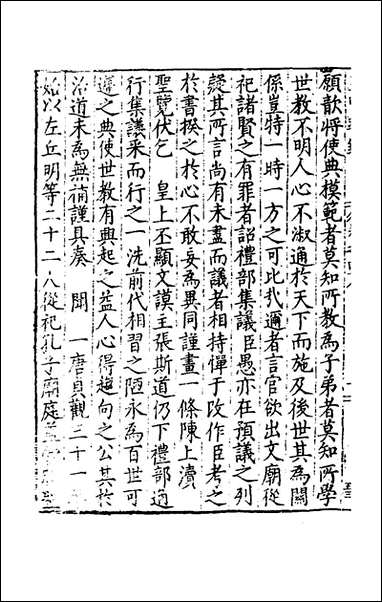 願歆將使典模範者莫知所教為子弟者莫知所學
世教不明人心不淑通於天下而施及後世其為關
係豈特一時一方之可比哉邇者言官欲出文廟從
祀諸賢之有罪者詔禮部集議臣愚亦在預議之列
疑其所言尚有未盡而議者相持憚于改作臣考之
於書揆之於心不敢妄為異同謹畫一條陳上瀆
聖覽伏乞 皇上丕顯文謨主張斯道仍下禮部通
行集議采而行之一洗前代相習之陋永為百世可
遵之典使世教有興起之益人心得趨向之公其於
治道未為無補謹具奏 聞 一唐貞觀二十一
始以左丘明等二十二人從祀孔子廟庭